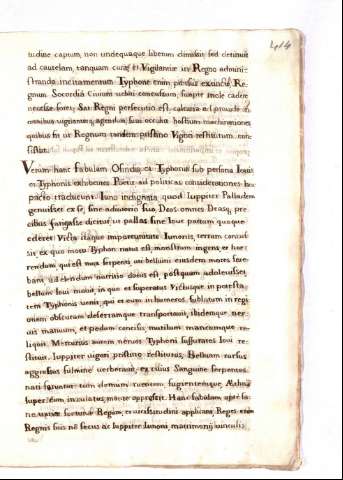 414
tudine captum, non undequaque liberum dimisit, sed detinuit
ad cautelam, tanquam curae et Vigilantiae in Regno admini-
stranda, incitamentum Typhone enim, penitus extincto, Re-
gnum Socordia Civium veluti concussum, suapte mole cadere
necesse foret; Sat Regni persecutio est, calcaria
manibus vigilanter agendum, sunt occulta hostium machinationes
quibus fit ut Regnum tandem pristino Vigori restitutum con-
sistat.
Verum hanc fabulam Osiridis, et Typhonis sub persona Iovis
et Typhonis exhibentes Poetae ad politicas considerationes hoc
pacto traducunt. Iuno indignata quod Iuppiter Palladem
genuisset ex se, sine adiutorio suo, Deos omnes Deasque, pre-
cibus fatigasse dicitur, ut pallas sine Iove partum quoque
ederet Victa itaque importunitate Iunonis, terram concus-
sit, ex quo motu Typhon natus est, monstrum ingens, et hor-
rendum, qui est mox serpenti
ad nutriendum nutritio datus est, postquam adolevisset,
bellum Iovi movit, in quo et superatus Victusque in potesta-
tem Typhonis venit, qui et eum in humeros sublatum in regi-
onem obscuram desertamque transportavit, ibidemque ner-
vis manuum, et pedum concisis, mutilum mancumque re-
liquit. Mercurius autem nervos Typhoni suffuratos Iovi re-
stituit. Iuppiter vigori pristino restitutus, Belluam rursus
aggressus fulmine verberavit, ex cuius Sanguine serpentes
nati
super eum, iaculatus monte oppressit. Hanc fabulam
Regum, et vicissitudini applicant, Reges enim
Regnis suis non secus ac Iuppiter Iunoni, matrimonij vinculis